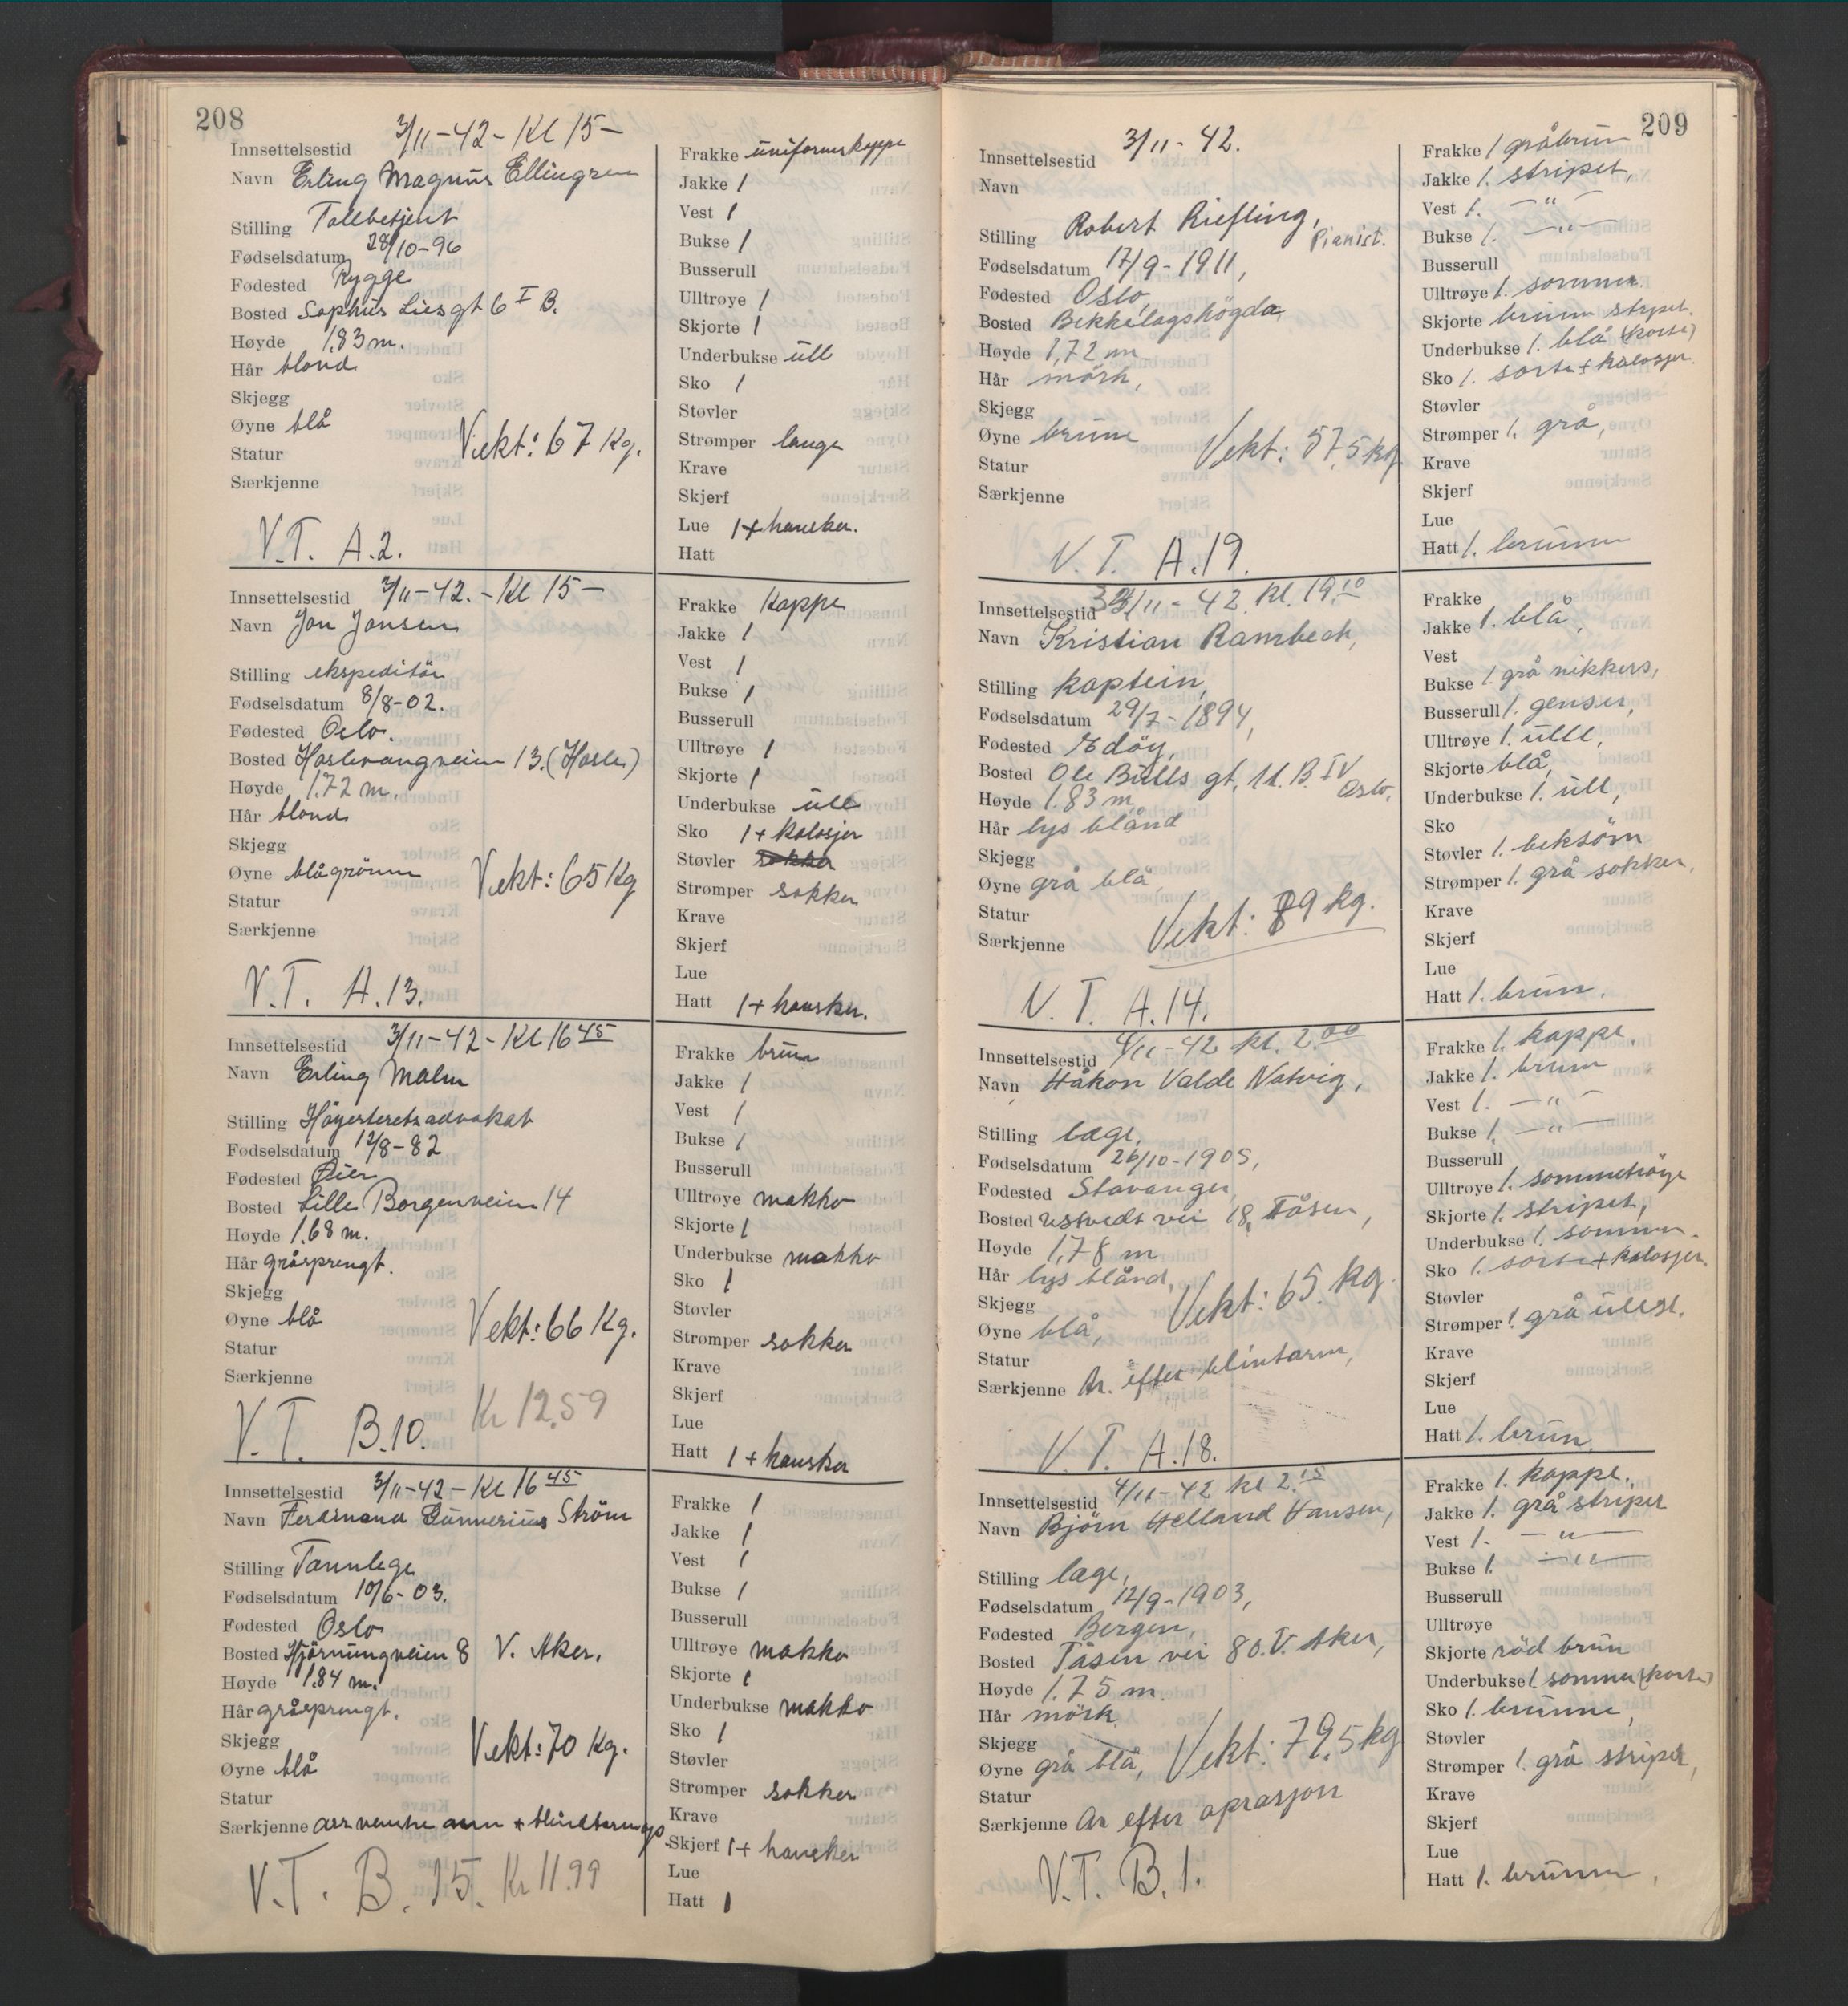 208
Innsettelsestid 3/11-42 - Kl 15-
Navn Erling Magnus Ellingsen
Stilling Tollbetjent
Fødselsdatum 28/10-96
Fødested Rygge
Bosted Sophus Liesgt 6 I B.
Høyde 1,83 m.
Hår blond
Skjegg
Øyne blå
Vekt: 67 Kg.
Statur
Særkjenne
V.T. A.2.
Frakke uniformskappe
Jakke 1
Vest 1
Bukse 1
Busserull
Ulltrøye 1
Skjorte 1
Underbukse ull
Sko 1
Støvler
Strømper lange
Krave
Skjerf
Lue 1+hansker.
Hatt
Innsettelsestid 3/11-42. - Kl 15-
Navn Jon Jonsen
Stilling ekspeditör
Fødselsdatum 8/8-02.
Fødested Oslo.
Bosted Haslevangveien 13. (Hasle)
Høyde 1,72 m.
Hår blond
Skjegg
Øyne blågrønn
Vekt: 65 Kg
Statur
Særkjenne
V.T. A.13.
Frakke Kappe
Jakke 1
Vest 1
Bukse 1
Busserull
Ulltrøye 1
Skjorte 1
Underbukse ull
Sko 1 + kalosjer
Støvler sokker
Strømper sokker
Krave
Skjerf
Lue
Hatt 1+ hansker.
Innsettelsestid 3/11-42 - Kl 16 45
Navn Erling Malm
Stilling Höyesteretsadvokat
Fødselsdatum 12/8-82
Fødested
Bosted Lille Borgenveien 14
Høyde 1,68 m.
Hår gråsprengt.
Skjegg
Øyne blå
Vekt: 66 Kg.
Statur
Særkjenne
Kr 12.59
V.T. B.10.
Frakke brun
Jakke 1
Vest 1
Bukse 1
Busserull
Ulltrøye makko
Skjorte 1
Underbukse makko
Sko 1
Støvler
Strømper sokker
Krave
Skjerf
Lue
Hatt 1 + hansker
Innsettelsestid 3/11-42 - Kl 16 45
Navn Ferdinand Gunnerius Ström
Stilling Tannlege
Fødselsdatum 10/6-03.
Fødested Oslo
Bosted Hjörnungveien 8 V. Aker.
Høyde 1.84 m.
Hår gråsprengt.
Skjegg
Øyne blå
Vekt: 70 Kg.
Statur
Særkjenne arr venstre arm + blindtarmsop.
V.T. B. 15. Kr 11.99
Frakke 1
Jakke 1
Vest 1
Bukse 1
Busserull
Ulltrøye makko
Skjorte 1
Underbukse makko
Sko 1
Støvler
Strømper sokker
Krave
Skjerf 1+ hansker
Lue
Hatt 1
209
Innsettelsestid 3/11-42.
Navn
Stilling Robert Riefling, Pianist.
Fødselsdatum 17/9-1911,
Fødested Oslo,
Bosted Bekkelagshögda
Høyde 1,72 m
Hår mörk,
Skjegg
Øyne brune
Vekt: 57,5 kg
Statur
Særkjenne
V.T. A.19.
Frakke 1 gråbrun
Jakke 1. stripet,
Vest 1. -"-
Bukse 1. -"-
Busserull
Ulltrøye 1. sommer.
Skjorte brun stripet.
Underbukse 1. blå (korte)
Sko 1. sorte + kalosjer.
Støvler
Strømper 1. grå,
Krave
Skjerf
Lue
Hatt 1. brun
Innsettelsestid 3/11-42. kl. 19.10
Navn Kristian Rambech,
Stilling kaptein,
Fødselsdatum 29/7-1894,
Fødested Edöy,
Bosted Ole Bulls gt. 11. B. IV Oslo.
Høyde 1.83 m
Hår lys blånd
Skjegg
Øyne grå blå,
Statur
Vekt: 89 kg.
Særkjenne
V.T. A.14.
Frakke
Jakke 1. blå,
Vest
Bukse 1. grå nikkers,
Busserull 1. genser,
Ulltrøye 1. ull,
Skjorte blå,
Underbukse 1. ull,
Sko
Støvler 1. beksöm
Strømper 1. grå sokker,
Krave
Skjerf
Lue
Hatt 1. brun.
Innsettelsestid 4/11-42 kl. 2.00
Navn Håkon Valde Natvig,
Stilling læge,
Fødselsdatum 26/10-1905,
Fødested Stavanger
Bosted vei 18, Tåsen,
Høyde 1,78 m
Hår lys blånd,
Skjegg
Vekt: 65. kg.
Øyne blå,
Statur
Særkjenne Ar. efter blintarm,
V.T. A.18.
Frakke 1. kappe,
Jakke 1. brun
Vest 1. -"-
Bukse 1. -"-
Busserull
Ulltrøye 1. sommetröye
Skjorte 1. stripet,
Underbukse 1. sommer.
Sko 1. sorte + kalosjer.
Støvler
Strømper 1. grå ullst.
Krave
Skjerf
Lue
Hatt 1. brun
Innsettelsestid 4/11-42 kl 2.15
Navn Björn Helland Hansen,
Stilling læge,
Fødselsdatum 12/9-1903,
Fødested Bergen,
Bosted Tåsen vei 80. V. Aker,
Høyde 1.75 m.
Hår mörk
Skjegg
Øyne grå blå,
Vekt: 79,5 kg
Statur
Særkjenne Ar efter oprasjon
V.T. B.1.
Frakke 1. kappe.
Jakke 1. grå stripet
Vest 1. -"-
Bukse 1. -"-
Busserull
Ulltrøye
Skjorte röd brun
Underbukse 1. sommer (korte)
Sko 1. brunne,
Støvler
Strømper 1. grå stripet,
Krave
Skjerf
Lue
Hatt 1. brunn,